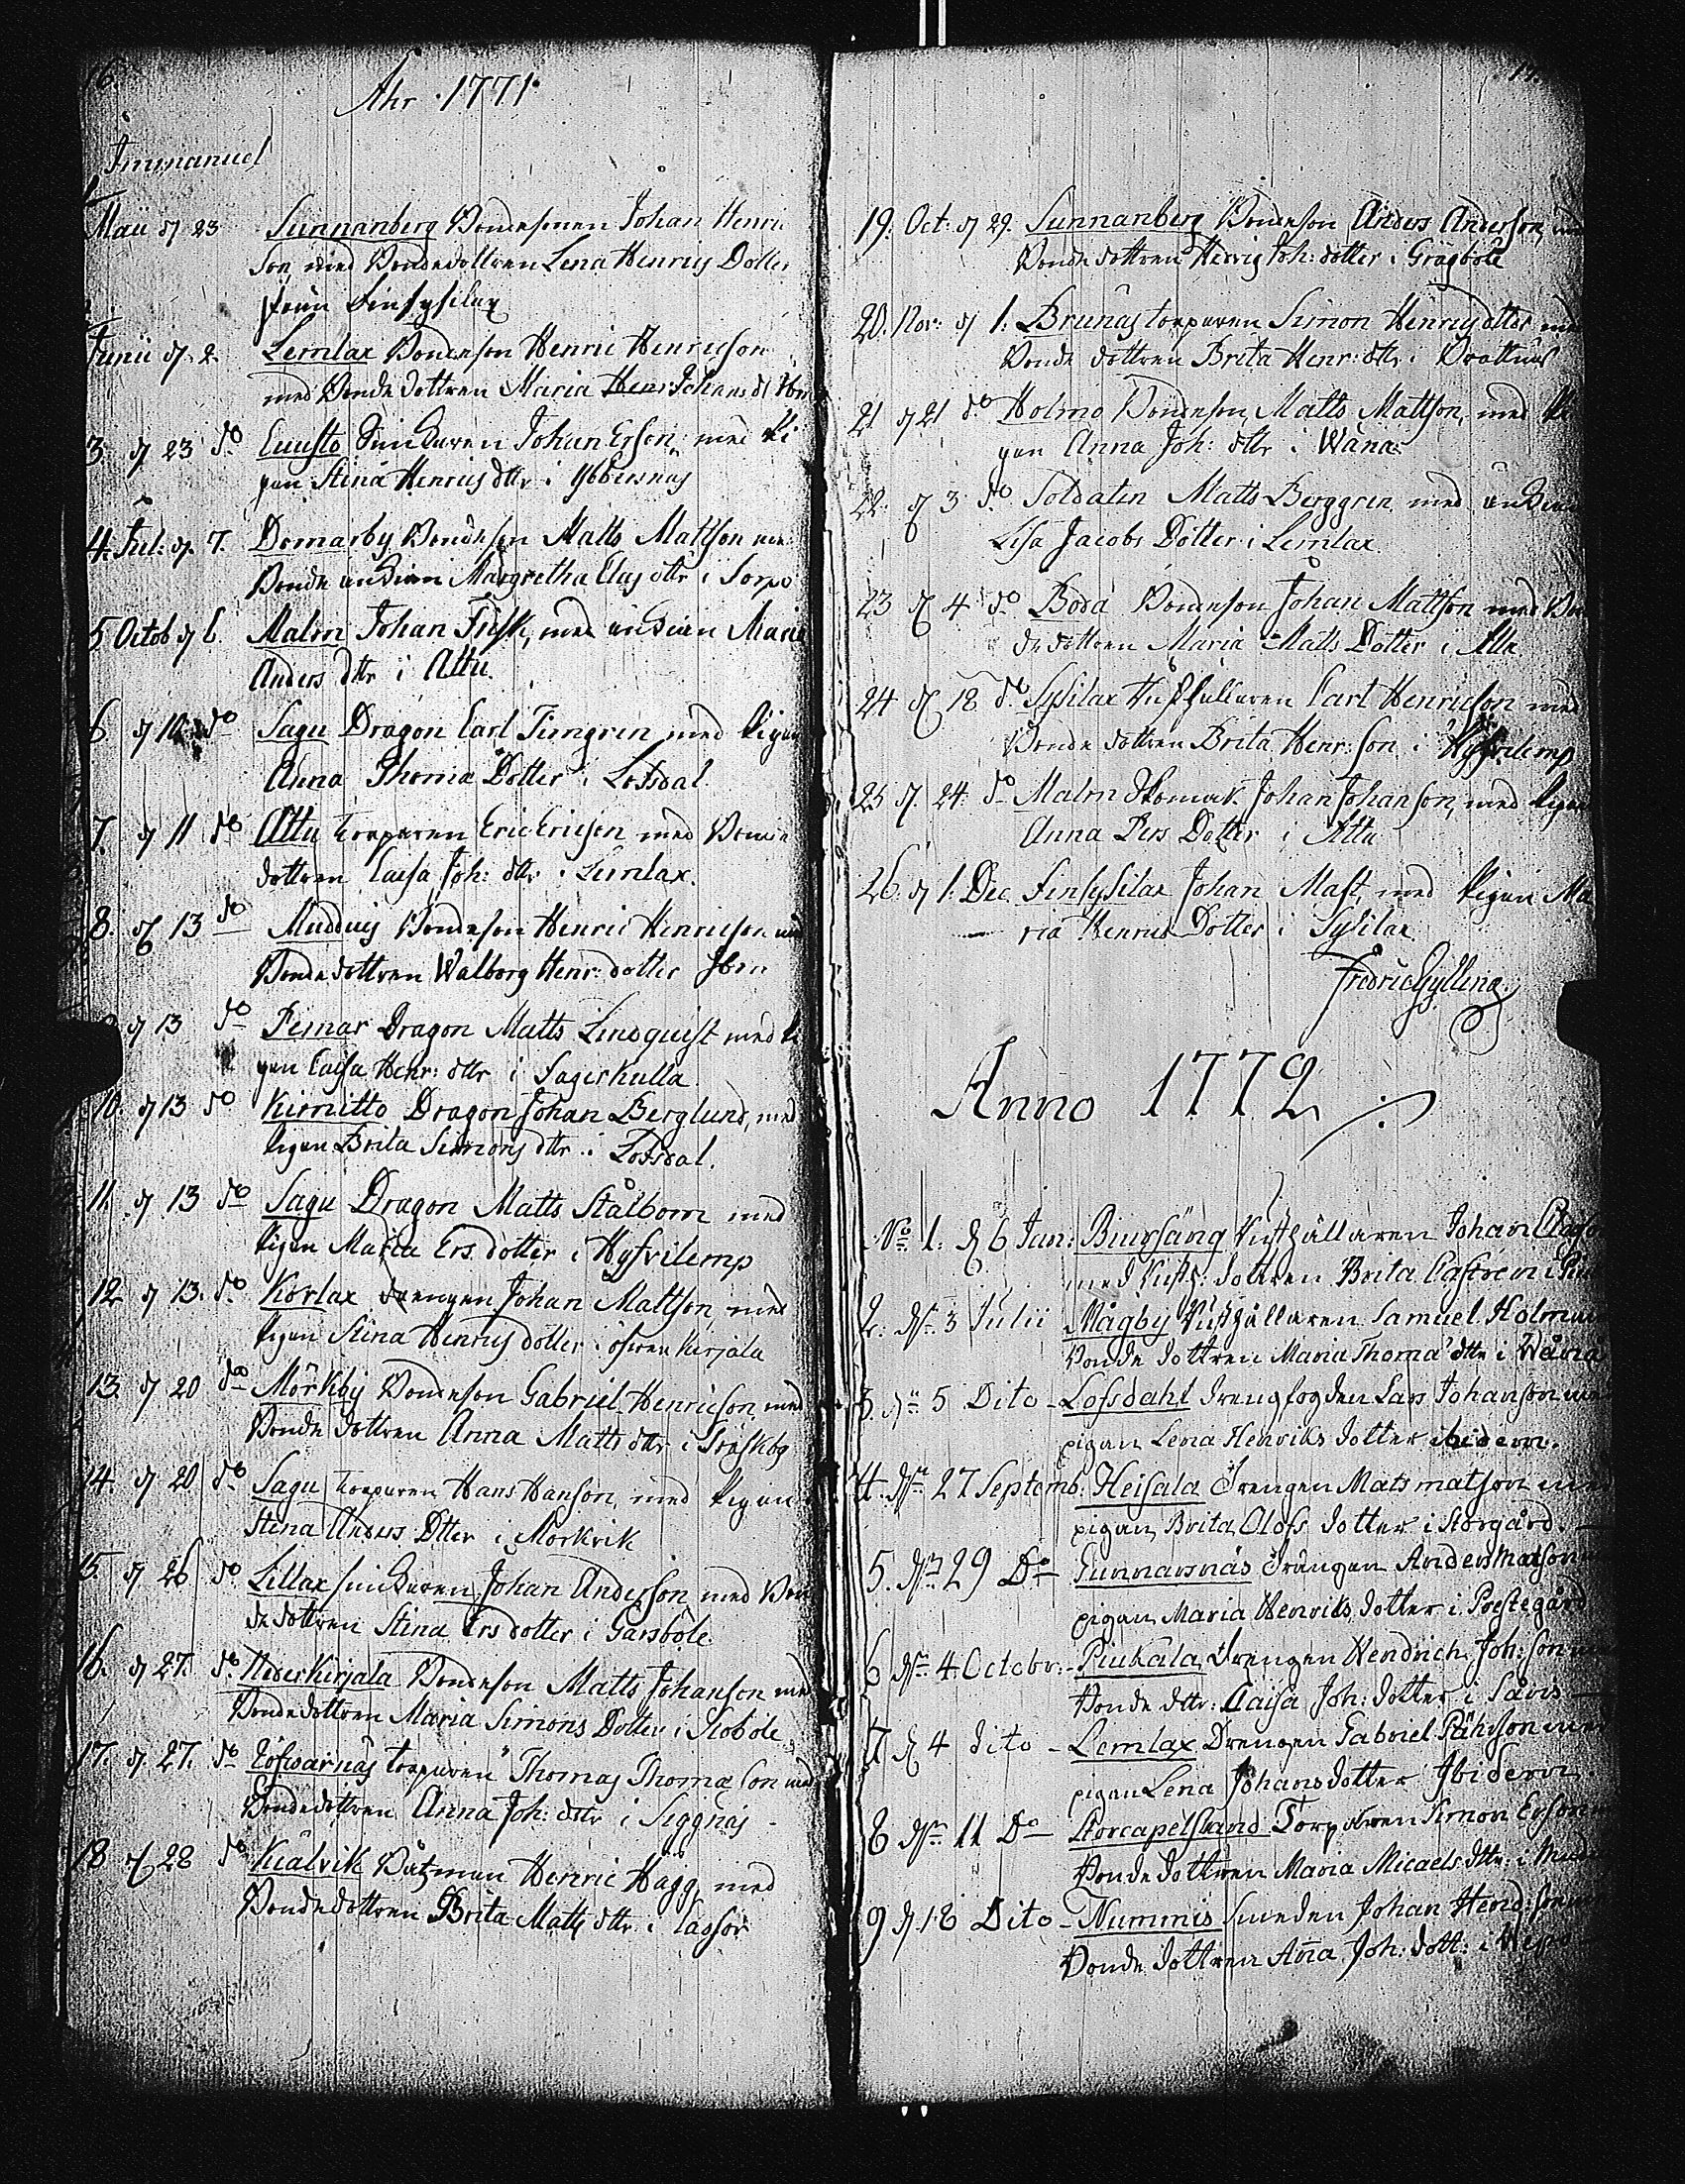 Ahr 1771
Immanuel
Maii d 23 Sunnanberg Bondesonen Johan Henric
son, med Bondedottren Lena Henrics Dotter
från Finsysilax
Junii d. 2. Lemlax Bondeson Henric Henricson
med Bonde dottren Maria Johans d
3. d 23 do Ersson med Pi
gan Stina Henrics dttr i Ybbersnäs
4. Jul: d. 7. Domarby Bondeson Matts Mattson med
Bonde änckan Margretha dttr i Sorpo
5 Octob d 6. Malm Johan Frisk, med änckan Maria
Anders dttr i Attu.
6 d 10 do Sagu Dragon Carl med Pigan
Anna Thomæ Dotter i Lofsdal
7. d 11 do Attu torparen Eric Ericson med Bonde
dottren Caisa Joh: dttr i Lemlax.
8. d 13 do Muddais Bondeson Henric Henricson med
Bondedottren Walborg Henr: dotter Ibm
d 13 do Pemar Dragon Matts Lindquist med Pi
gan Caisa Henr: dttr i Sagerkulla
10. d 13 do Kimitto Dragon Johan Berglund, med
Pigan Brita Simons dttr i Lofsdal.
11. d 13 do Sagu Dragon Matts Stålbom med
Pigan Maria Ers dotter i Hyfvilemp
12 d 13. do Korlax drengen Johan Mattson, med
Pigan Stina Henrics dotter i öfvre Kirjala
13. d 20 do Mörkby Bondeson Gabriel Henricson, med
Bonde dottren Anna Matts dttr i Träskby
14. d 20 do Sagu torparen Hans Hanson, med Pigan
Stina Anders Dtter i Mörkvik
15. d 26 do Lillax Johan Anderson, med Bon
de dottren Stina Ers dotter i Garsböle
16. d 27. do Nederkirjala Bondeson Matts Johanson med
Bondedottren Maria Simons Dotter i
17. d. 27. do torparen Thomas Thomæ son med
Bondedottren Anna Joh: dttr i Siggnäs
18 d 28 do Kiälvik Båtsman Henric Hägg, med
Bondedottren Brita Matts dttr i
19. Oct: d 29. Sunnanberg Bondeson Anders Anderson, med
Bonde dottren Hervig Joh: dotter i Grägböle
20. Nov: d 1: Brunäs torparen Simon Henrics
Bonde dottren Brita Henr: dttr i
21 d 21 do Holmo Bondeson, Matts Mattson, med Pi
gan Anna Joh: dttr i Wåna
22. d 3 do Soldaten Matts Berggren, med änckan
Lisa Jacobs Dotter i Lemlax
23 d 4 do Boda Bondeson Johan Mattson med Bon
de dottren Maria Matts Dotter i Attu
24 d 18 do Sysilax Rusthållaren Carl Henricson med
Bonde dottren Brita Henr: son i Hyfvilemp
25 d. 24 do Malm Johan Johanson, med Pigan
Anna Pers Dotter i Attu
26. d 1. Dec. Finsysilax Johan Mast, med Pigan Ma
ria Henrics Dotter i Sysilax.
Fredric Gylling
Anno 1772
No 1. d 6 Jan: Biursäng Rusthållaren Johan
med Rusth: dottren Brita Castrén i
2. dn 3 Julii Mågby Rusthållaren Samuel
Bonde dottren Maria Thomæ dttr i Wåna
3. dn 5 Dito Lofsdahl Drengfogden Lars Johanson med
pigan Lena Henriks dotter ibidem.
4. dn 27 Septemb: Heisala Drengen Mats matson med
pigan Brita Olofs dotter i Storgård.
5. dn 29 Do Gunnarsnäs Drängen Anders Matson
pigan Maria Henriks dotter i Prestegård
6 dn 4. Octobr: Piukala Drengen Hendrich Joh: son
Bonde dttr: Caisa Joh: dotter i Såris
7 d 4 dito Lemlax Drengen Gabriel med
pigan Lena Johansdotter Ibidem
8 dn 11 Do Storcapelstrand Torparen Simon Erson
Bonde dottren Maria Micaels dttr: i
9 d 18 Dito Nummis Smeden Johan Hend: son
Bonde dottren Aña Joh: dott: i